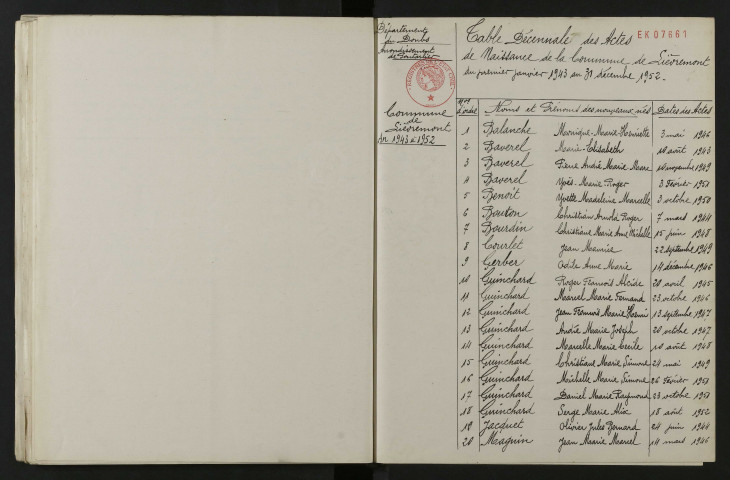 Département
du Doubs
Arrondissement
de Pontarlier
Commune
de
Lièvremont
An 1943 à 1952
EK07661
Table Décennale des Actes
de Naissance de la Commune de Lièvremont
du premier janvier 1943 au 31 décembre 1952.
Nos d'ordre Noms et Prénoms des nouveaux-nés Dates des Actes
1 Balanche Monique Marie Henriette 3 mai 1946
2 Baverel Marie-Elisabeth août 1943
3 Baverel Pierre André Marie novembre 1949
4 Baverel Yves-Marie Roger 3 Février 1951
5 Benoît Yvette Madeleine Marcelle 3 octobre 1950
6 Bouton Christian Arnold Roger 7 mars 1944
7 Bourdin Christiane Marie Anne Michelle 15 juin 1948
8 Courlet Jean Maurice 22 septembre 1949
9 Gerber Odile Anne Marie 14 décembre 1946
10 Guinchard Roger François Alcide 20 avril 1945
11 Guinchard Marcel Marie Fernand 23 octobre 1946
12 Guinchard Jean François Marie Henri 13 septembre 1947
13 Guinchard André Marie Joseph 20 octobre 1947
14 Guinchard Marcelle Marie Cécile 10 août 1948
15 Guinchard Christiane Marie Simone 24 mai 1949
16 Guinchard Michelle Marie Simone 26 Février 1951
17 Guinchard Daniel Marie Raymond 23 octobre 1951
18 Guinchard Serge Marie Alix 18 août 1952
19 Jacquet Olivier Jules Bernard 24 juin 1944
20 Magnin Jean Marie Marcel 14 mars 1946